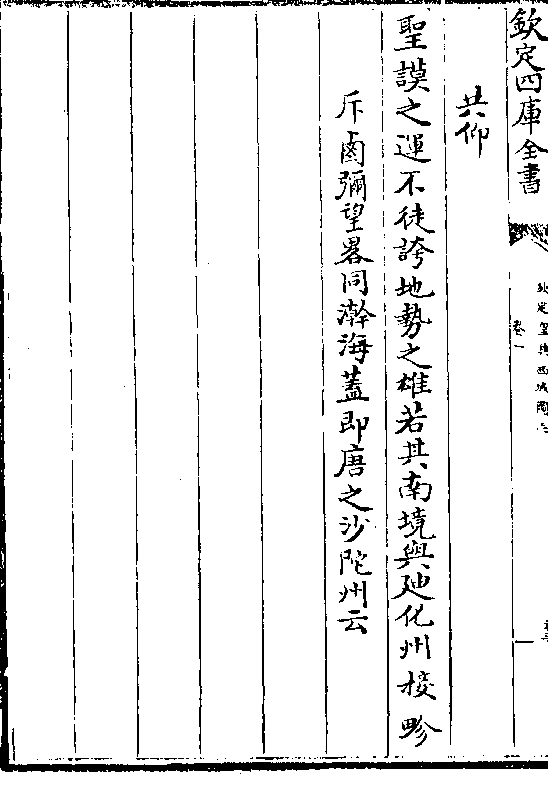 欽定四庫全書
卷一
共仰
聖謨之運不徒誇地勢之雄若其南境與廸化州接畛
斥鹵彌望畧同瀚海蓋即唐之沙陀州云